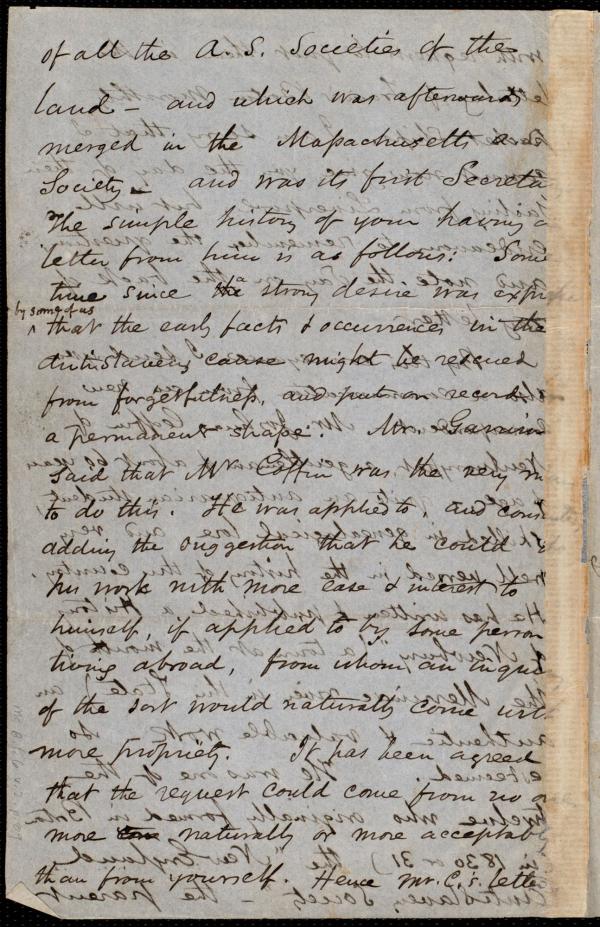 of all the A. S. Societies of the
land – and which was afterwards
merged in the Massachusetts A
Society – and was its first Secreta
The simple history of your having a
letter from him is as follows: Some
time since a strong desire was expre
by some of us
that the early facts & occurrences in the
Antislavery cause might be rescued
from forgetfulness, and put on record in
a permanent shape. Mr. Garrison
said that Mr Coffin was the very m
to do this. He was applied to, and cons
adding the suggestion that he could
his work with more ease & interest to
himself, if applied to by some person
living abroad, from whom an inquiry
of the sort would naturally come with
more propriety. It has been agreed
that the request could come from no one
more naturally or more acceptabl
than from yourself. Hence Mr. C.'s letter